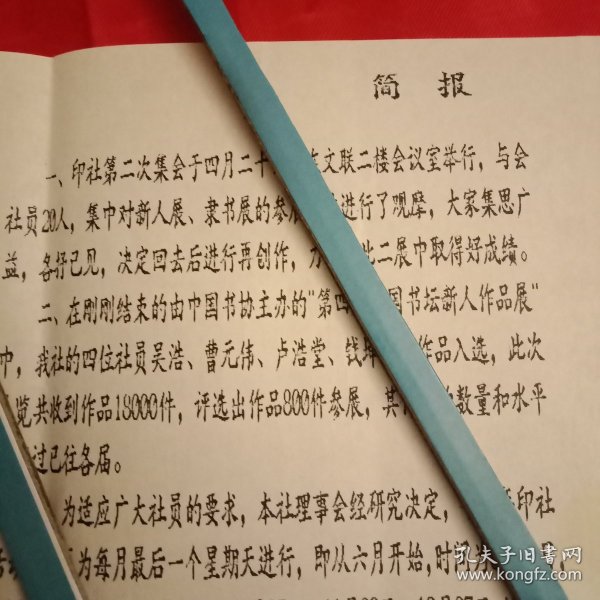 简 报
一、印社第二次集会于四月二十 文联二楼会议室举行，与会
社员20人，集中对新人展、隶书展的参展 进行了观摩，大家集思广
益，各抒己见，决定回去后进行再创作，力 此二展中取得好成绩。
二、在刚刚结束的由中国书协主办的"第四 国书坛新人作品展"
中，我社的四位社员吴浩、曹元伟、卢浩堂、钱 作品入选，此次
览共收到作品18000件，评选出作品800件参展，其 数量和水平
过已往各届。
为适应广大社员的要求，本社理事会经研究决定， 印社
为每月最后一个星期天进行，即从六月开始，时间
孔夫子旧书网
www.kongfz.com